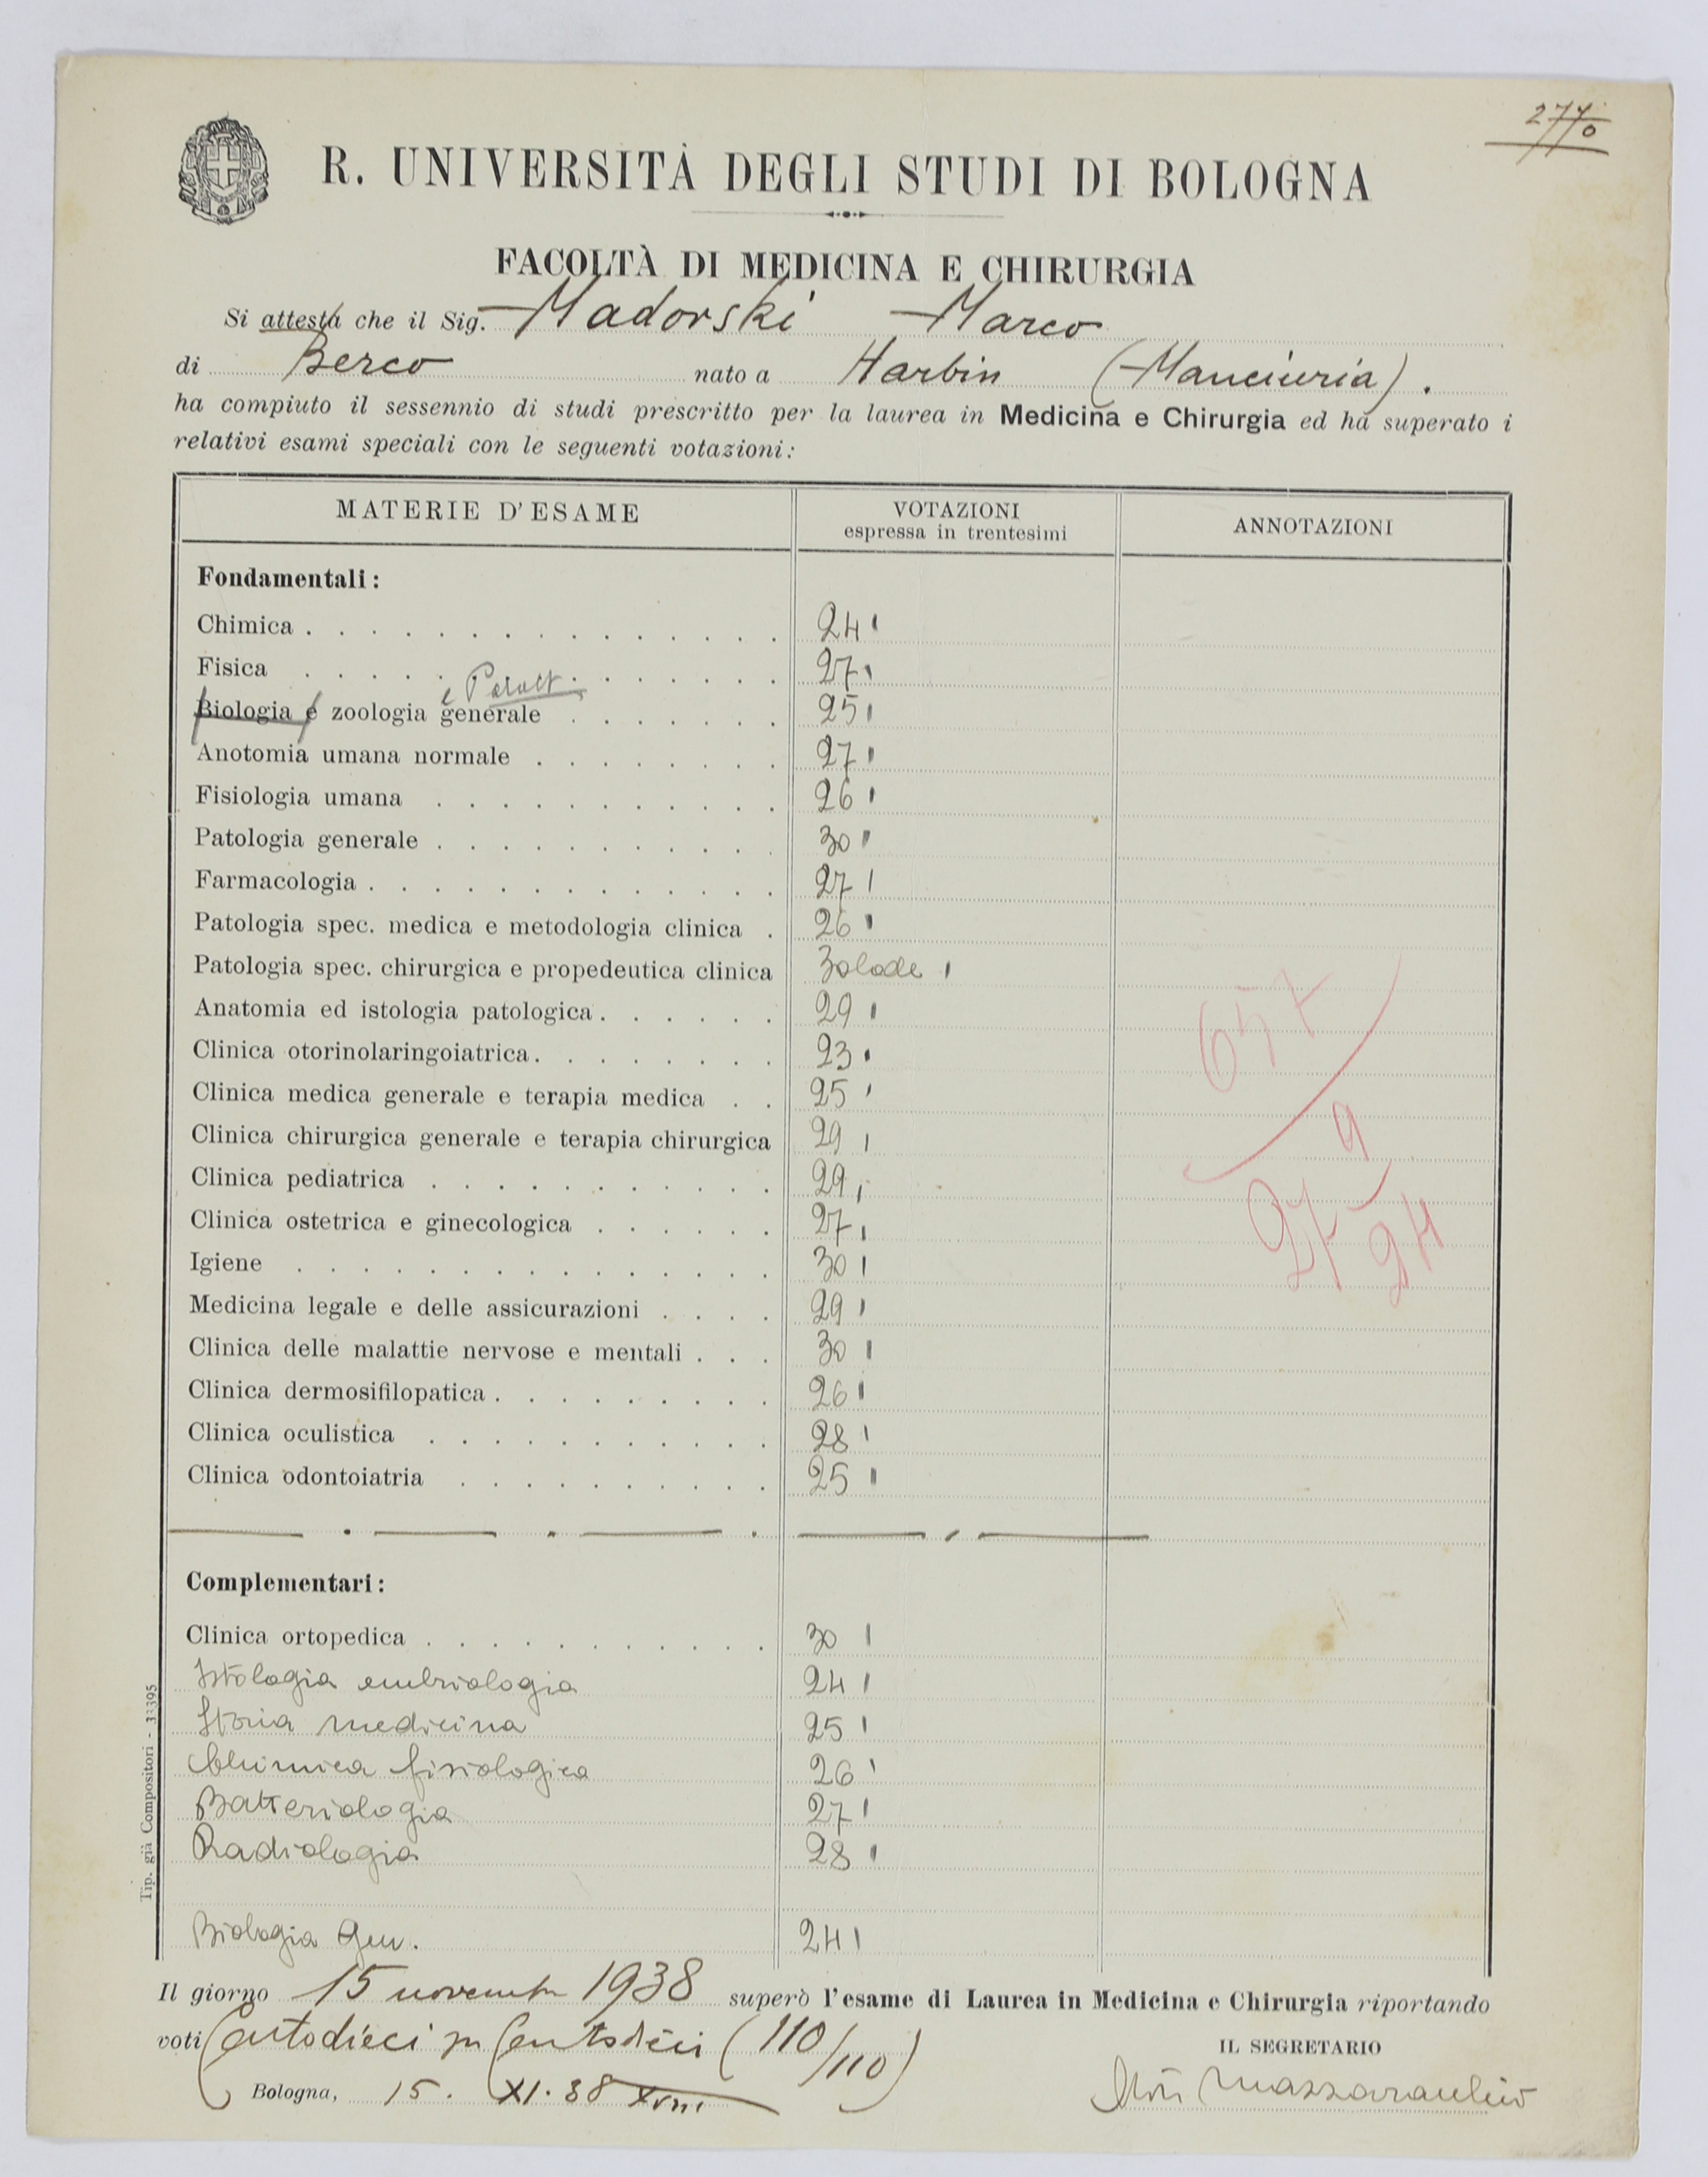 2770
R. UNIVERSITÀ DEGLI STUDI DI BOLOGNA
FACOLTÀ DI MEDICINA E CHIRURGIA
Si attesta che il Sig. Madorski Marco
di Berco nato a Harbin (Manciuria).
ha compiuto il sessennio di studi prescritto per la laurea in Medicina e Chirurgia ed ha superato i
relativi esami speciali con le seguenti votazioni:
MATERIE D'ESAME VOTAZIONI espressa in trentesimi ANNOTAZIONI
Fondamentali:
Chimica 24
Fisica 27
Biologia e zoologia generale 25
Anotomia umana normale 27
Fisiologia umana 26
Patologia generale 30
Farmacologia 27
Patologia spec. medica e metodologia clinica 26
Patologia spec. chirurgica e propedeutica clinica 30 lode
Anatomia ed istologia patologica 29
Clinica otorinolaringoiatrica 23
657
Clinica medica generale e terapia medica 25
Clinica chirurgica generale e terapia chirurgica 29
Clinica pediatrica 29
Clinica ostetrica e ginecologica 27
27 9/24
Igiene 30
Medicina legale e delle assicurazioni 29
Clinica delle malattie nervose e mentali 30
Clinica dermosifilopatica 26
Clinica oculistica 28
Clinica odontoiatria 25
Complementari:
Clinica ortopedica 30
Istologia embriologia 24
Storia medicina 25
Chimica fisiologica 26
Batteriologia 27
Radiologia 28
Biologia Gen. 24
Il giorno 15 novembre 1938 superò l'esame di Laurea in Medicina e Chirurgia riportando
voti Centodieci su Centodieci (110/110)
IL SEGRETARIO
Bologna, 15. XI. 38 XVII
Tip. già Compositori - 33395